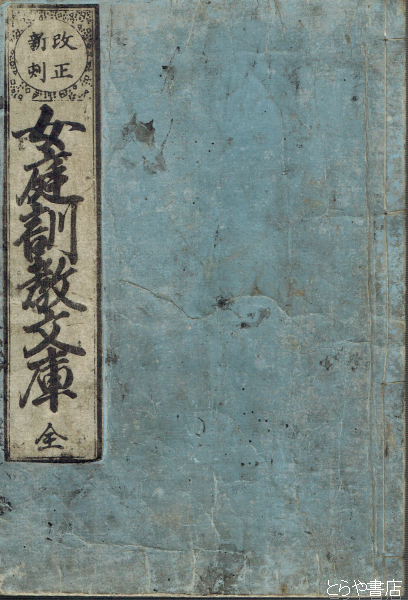 改正
新刻
女庭訓教文庫
全
とらや書店